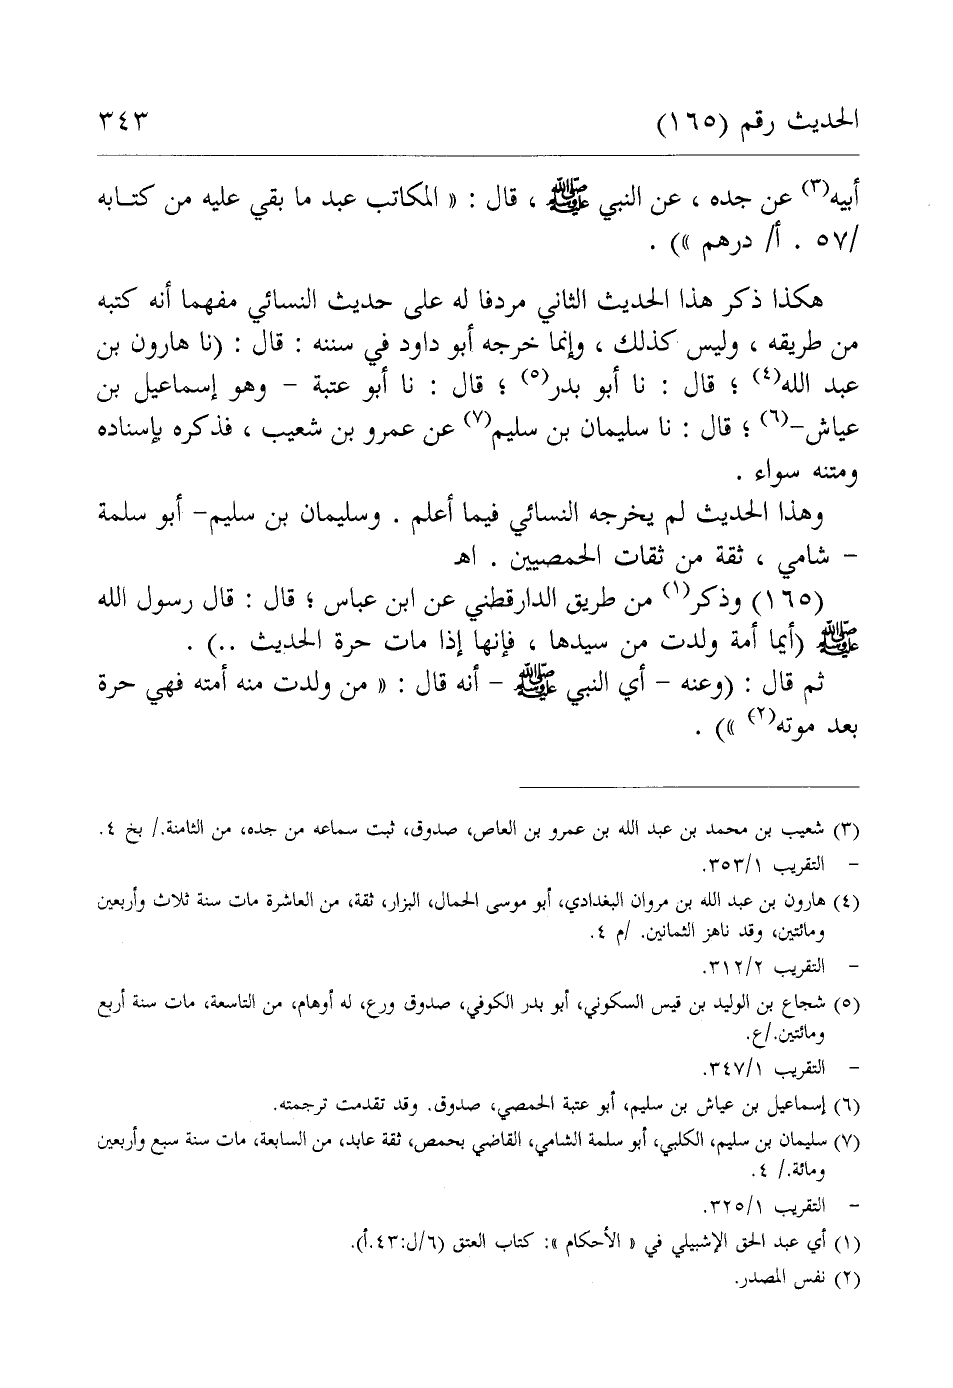 الحديث رقم (١٦٥) ٣٤٣
أبيه(٣) عن جده ، عن النبي ﷺ ، قال : « المكاتب عبد ما بقي عليه من كتـابه
/٥٧ . أ/ درهم ») .
هكذا ذكر هذا الحديث الثاني مردفا له على حديث النسائي مفهما أنه كتبه
من طريقه ، وليس كذلك ، وإنما خرجه أبو داود في سننه : قال : (نا هارون بن
عبد الله(٤) ؛ قال : نا أبو بدر(٥) ؛ قال : نا أبو عتبة - وهو إسماعيل بن
عياش-(٦) ؛ قال : نا سليمان بن سليم(٧) عن عمرو بن شعيب ، فذكره بإسناده
ومتنه سواء .
وهذا الحديث لم يخرجه النسائي فيما أعلم . وسليمان بن سليم- أبو سلمة
- شامي ، ثقة من ثقات الحمصيين . اهـ
(١٦٥) وذكر(١) من طريق الدارقطني عن ابن عباس ؛ قال : قال رسول الله
ﷺ (أيما أمة ولدت من سيدها ، فإنها إذا مات حرة الحديث ..) .
ثم قال : (وعنه - أي النبي ﷺ - أنه قال : « من ولدت منه أمته فهي حرة
بعد موته(٢) ») .
(٣) شعيب بن محمد بن عبد الله بن عمرو بن العاص، صدوق، ثبت سماعه من جده، من الثامنة./ بخ ٤.
- التقريب ٣٥٣/١.
(٤) هارون بن عبد الله بن مروان البغدادي، أبو موسى الحمال، البزار، ثقة، من العاشرة مات سنة ثلاث وأربعين
ومائتين، وقد ناهز الثمانين. /م ٤.
- التقريب ٣١٢/٢.
(٥) شجاع بن الوليد بن قيس السكوني، أبو بدر الكوفي، صدوق ورع، له أوهام، من التاسعة، مات سنة أربع
ومائتين./ع.
- التقريب ٣٤٧/١.
(٦) إسماعيل بن عياش بن سليم، أبو عتبة الحمصي، صدوق. وقد تقدمت ترجمته.
(٧) سليمان بن سليم، الكلبي، أبو سلمة الشامي، القاضي بحمص، ثقة عابد، من السابعة، مات سنة سبع وأربعين
ومائة./ ٤.
- التقريب ٣٢٥/١.
(١) أي عبد الحق الإشبيلي في « الأحكام »: كتاب العتق (٦/ل:٤٣.أ).
(٢) نفس المصدر.